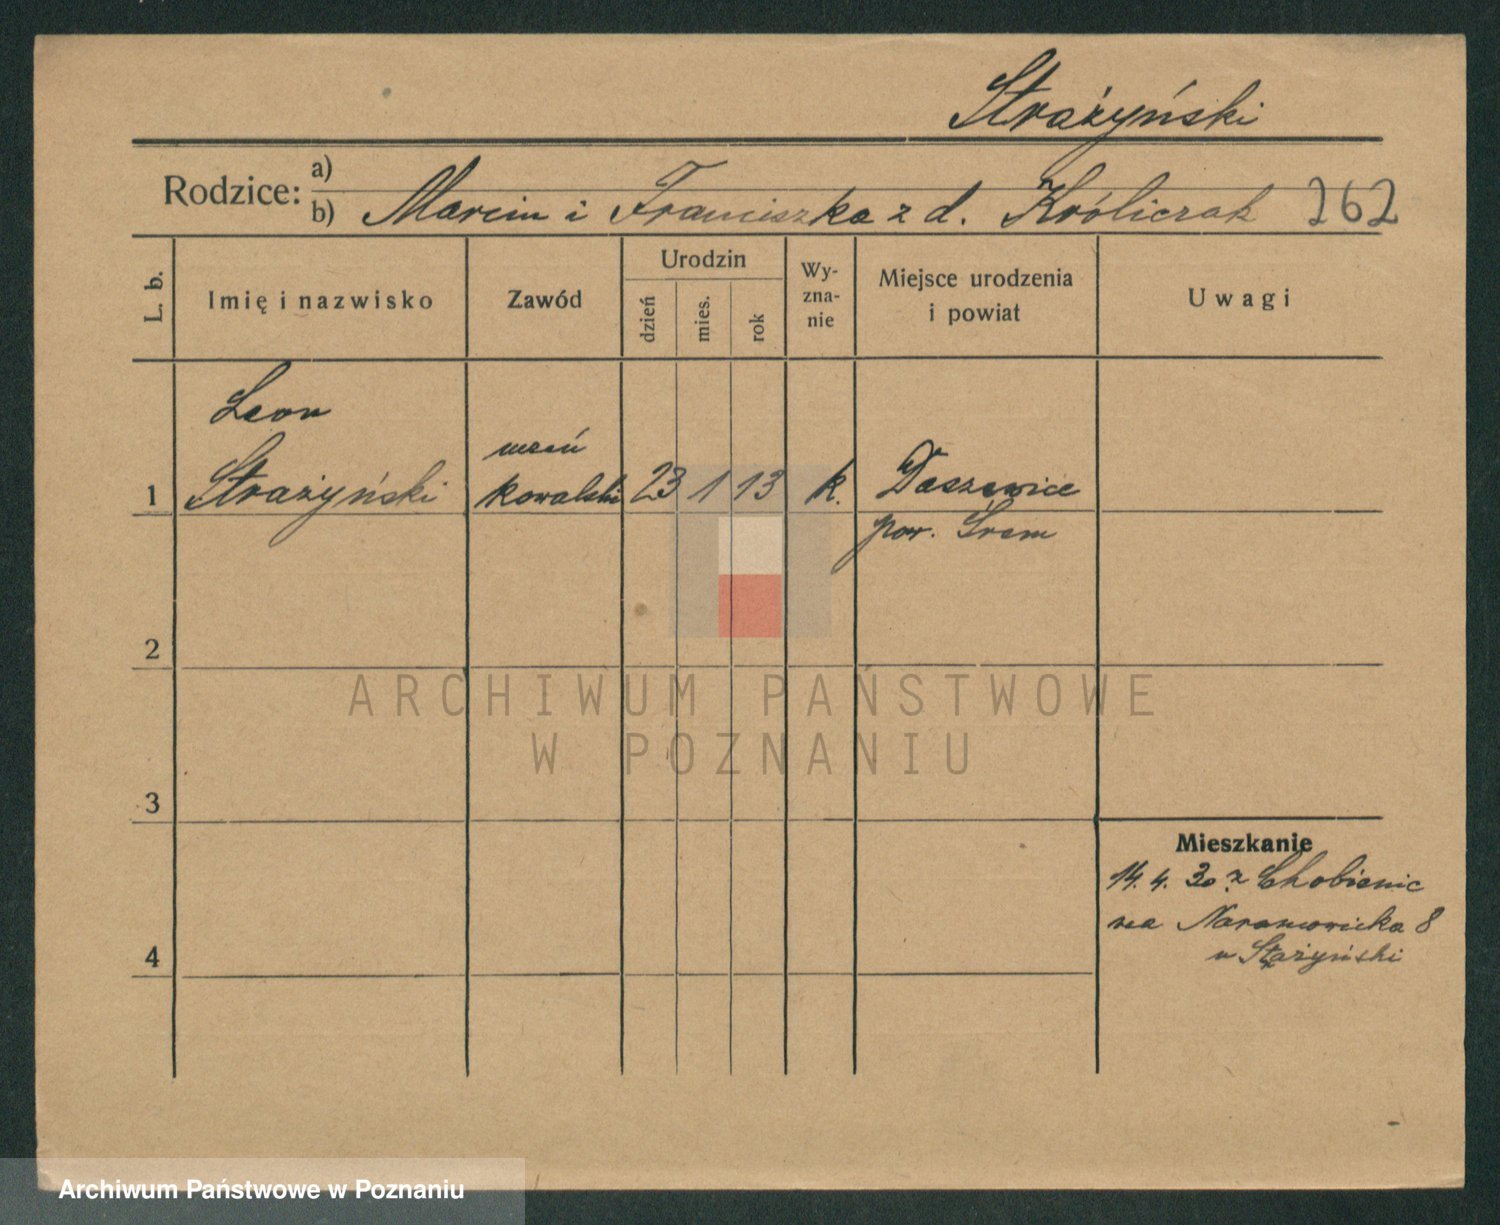 Strażyński
Rodzice:
a)
b) Marcin i Franciszka z d. Króliczak 262
L. b.
Imię i nazwisko
Zawód
Urodzin
dzień
mies.
rok
Wy-
zna-
nie
Miejsce urodzenia
i powiat
Uwagi
Leon
uczeń
1 Strażyński kowalski 23 1 13 k. Daszewice
pow. Śrem
2
ARCHIWUM PAŃSTWOWE
W POZNANIU
3
Mieszkanie
14. 4. 30 z Chobienic
na Naramowicka 8
u Strażyński
4
Archiwum Państwowe w Poznaniu